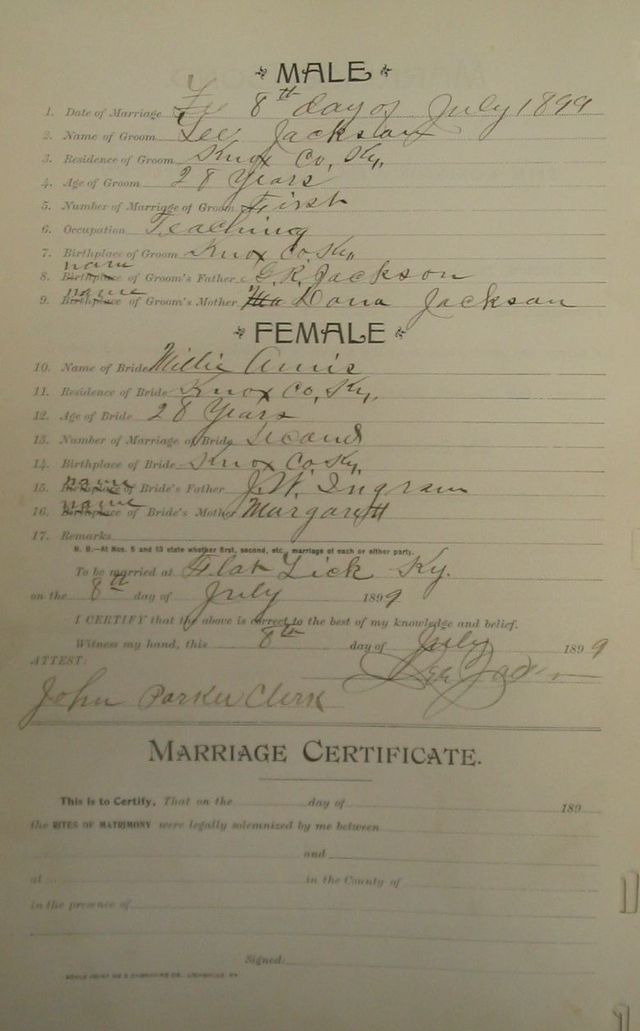 MALE
1. Date of Marriage 8th day of July 1899
2. Name of Groom Lee Jackson
3. Residence of Groom Knox Co, Ky,
4. Age of Groom 28 Years
5. Number of Marriage of Groom First
6. Occupation Teaching
7. Birthplace of Groom Knox Co. Ky,
8. Birthplace name of Groom's Father G. R. Jackson
9. Birthplace name of Groom's Mother Dona Jackson
FEMALE
10. Name of Bride Millie Amis
11. Residence of Bride Knox Co, Ky,
12. Age of Bride 28 Years
13. Number of Marriage of Bride Second
14. Birthplace of Bride Knox Co. Ky,
15. Birthplace name of Bride's Father J. W. Ingram
16. Birthplace name of Bride's Mother Margarett
17. Remarks
N. B.—At Nos. 5 and 13 state whether first, second, etc., marriage of each or either party.
To be married at Flat Lick Ky.
on the 8th day of July 1899
I CERTIFY that the above is correct to the best of my knowledge and belief.
Witness my hand, this 8th day of July 1899
ATTEST: Lee
John Parker Clerk
MARRIAGE CERTIFICATE.
This is to Certify, That on the day of 189
the RITES OF MATRIMONY were legally solemnized by me between
and
at in the County of
in the presence of
Signed: